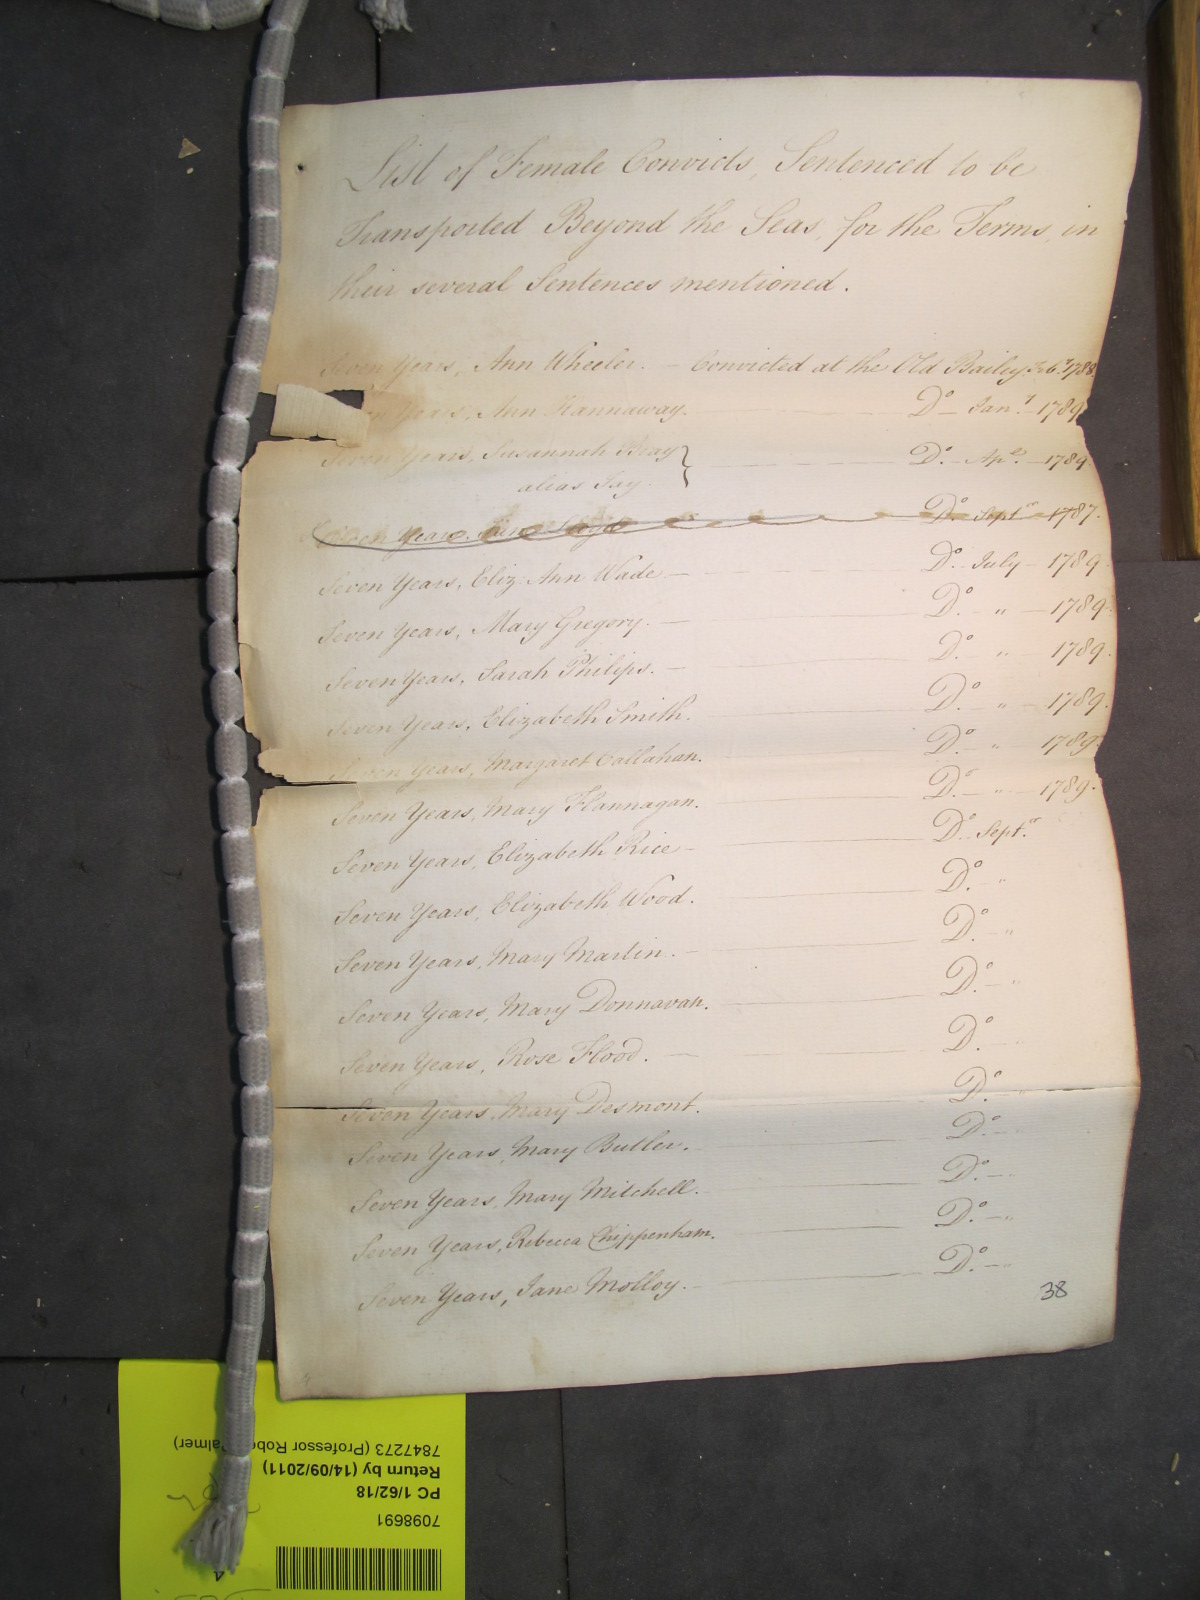 List of Female Convicts, Sentenced to be
Transported Beyond the Seas, for the Terms, in
their several Sentences mentioned.
Seven Years, Ann Wheeler. – Convicted at the Old Bailey Feb.y 1788
Years, Ann Hannaway. D.o – Jan.y – 1789
Seven Years, Susannah Bray } D.o – Ap.l – 1789
alias Gay.
Seven Years, D.o – Sept.r – 1787.
Seven Years, Eliz. Ann Wade – D.o – July – 1789
Seven Years, Mary Gregory. – D.o – " – 1789
Seven Years, Sarah Philips. – D.o " – 1789.
Seven Years, Elizabeth Smith. D.o " – 1789.
Seven Years, Margaret Callahan. D.o – " – 1789
Seven Years, Mary Flannagan. D.o – " – 1789.
Seven Years, Elizabeth Rice – D.o – Sept.r
Seven Years, Elizabeth Wood. D.o – "
Seven Years, Mary Martin. – D.o – "
Seven Years, Mary Donnavan. D.o – "
Seven Years, Rose Flood. – D.o –
Seven Years, Mary Desmont. D.o – "
Seven Years, Mary Butler. D.o – "
Seven Years, Mary Mitchell. D.o – "
Seven Years, Rebecca Chippenham. D.o – "
Seven Years, Jane Molloy. – D.o – "
38
7098691
PC 1/62/18
Return by (14/09/2011)
7847273 (Professor Robe almer)
4